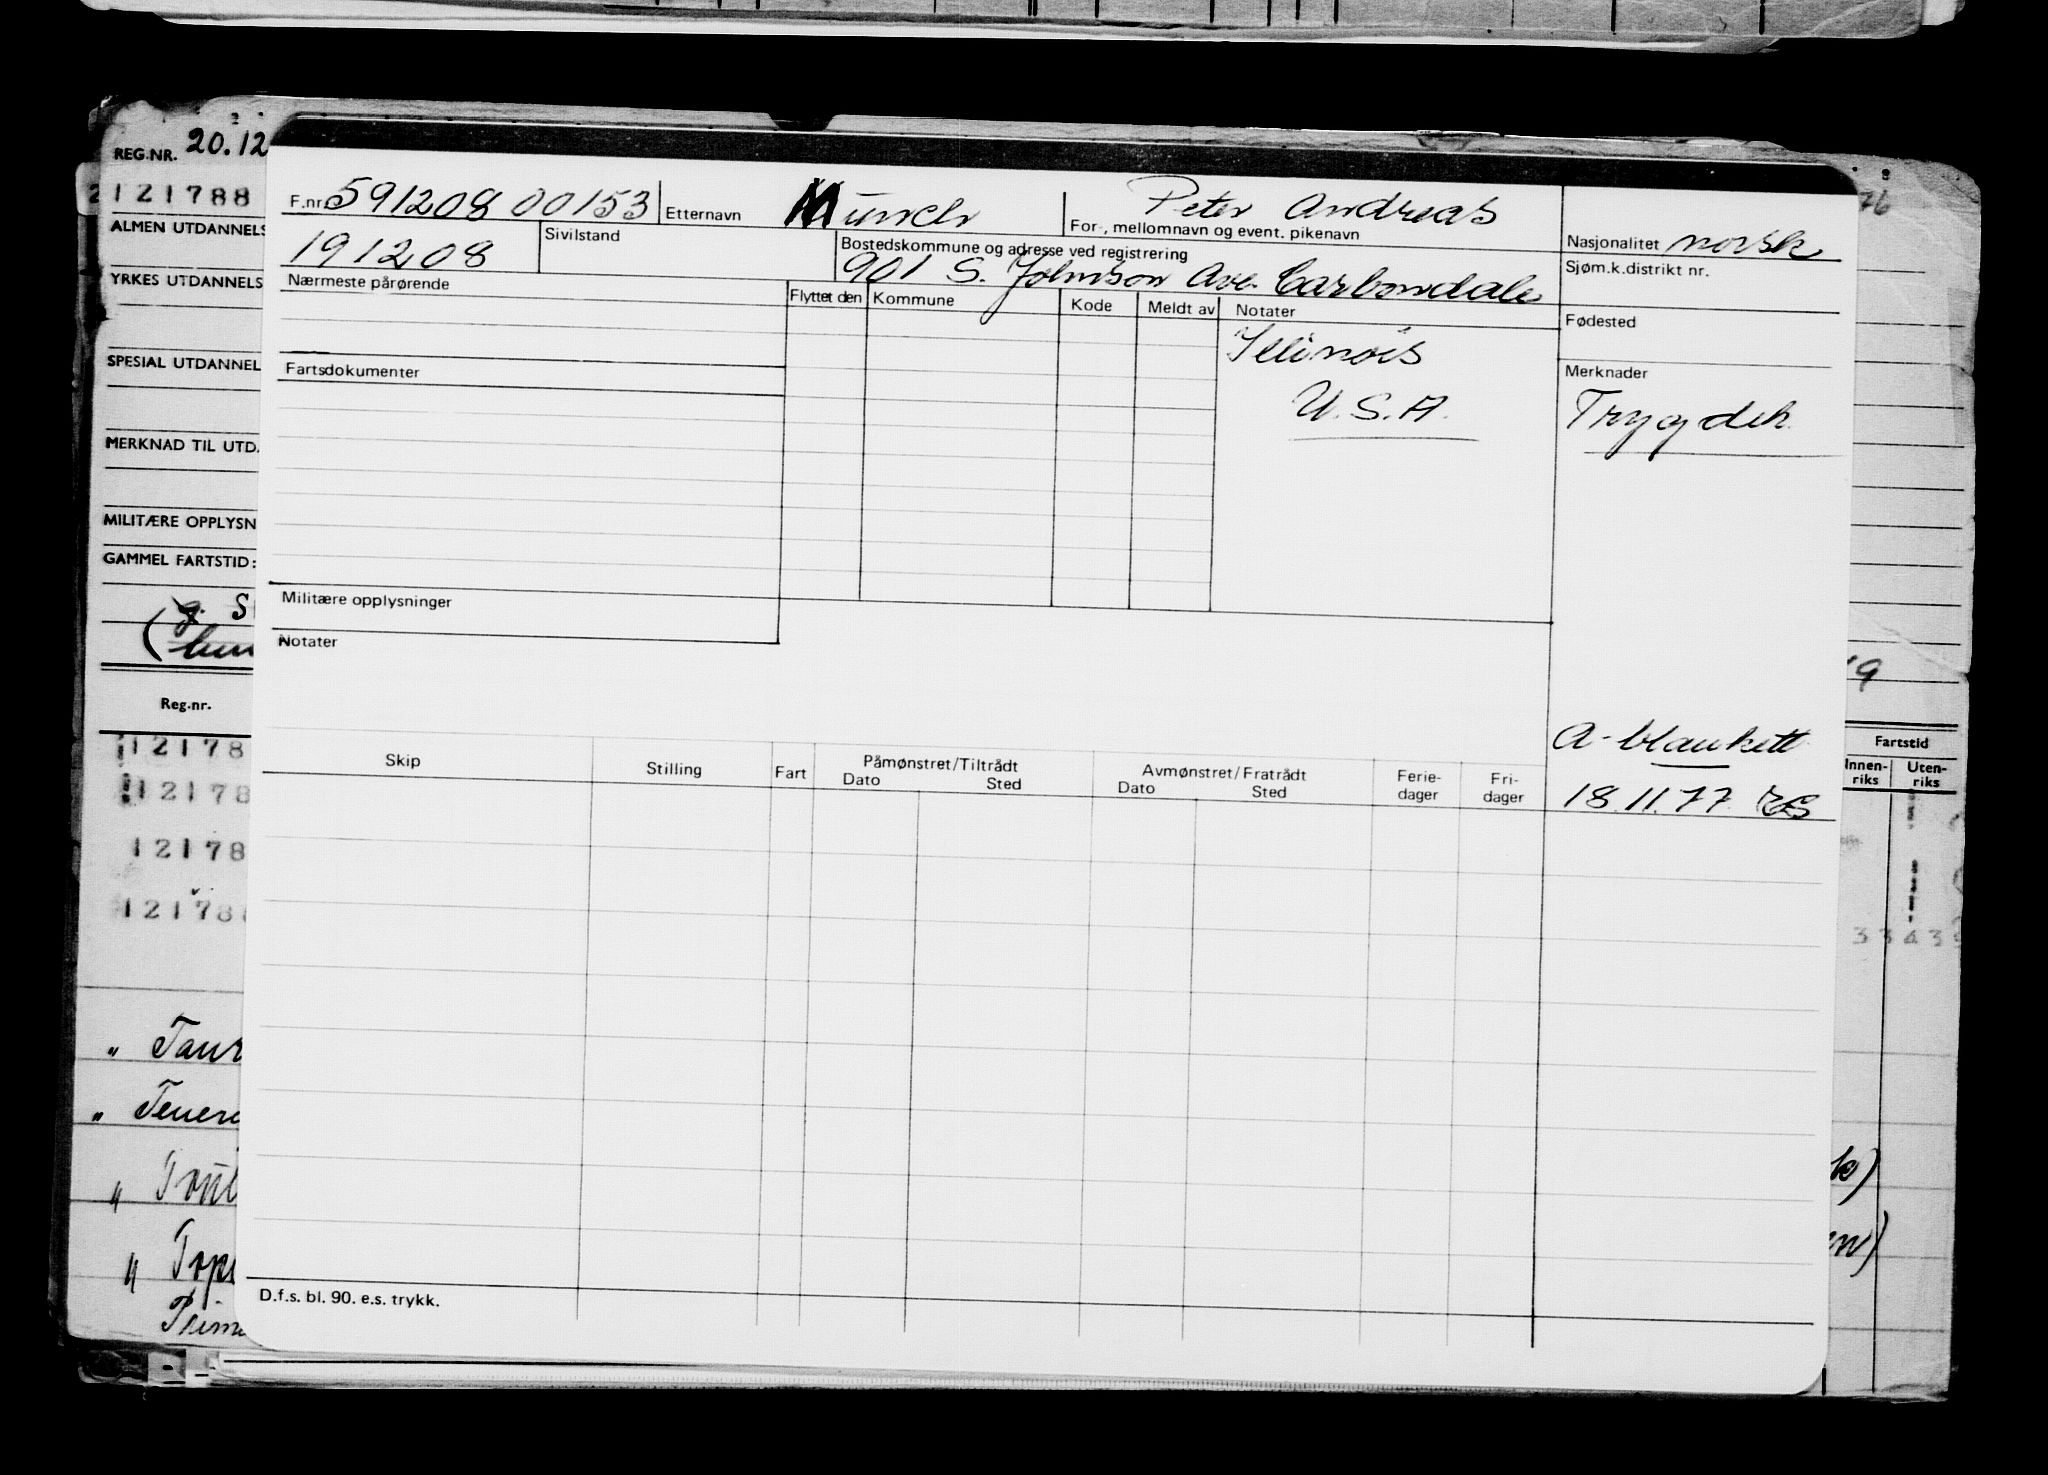 REG.NR. 20.12
121788
76
ALMEN UTDANNELS
YRKES UTDANNELS
SPESIAL UTDANNEL
MERKNAD TIL UTD.
MILITÆRE OPPLYSN
GAMMEL FARTSTID:
Reg.nr.
12178
12178
12178
12178
" Taur
" Teuere
F.nr. 591208 00153
Etternavn Münch
For-, mellomnavn og event. pikenavn Peter Andreas
Nasjonalitet norsk
191208
Sivilstand
Bostedskommune og adresse ved registrering
901 S. Johnson Ave. Carbondale
Sjøm.k.distrikt nr.
Nærmeste pårørende
Flyttet den Kommune Kode Meldt av Notater
Fødested
Illinois
U.S.A.
Fartsdokumenter
Merknader
Trygdek.
Militære opplysninger
Notater
A-blankett
18.11.77
Skip Stilling Fart Påmønstret/Tiltrådt Avmønstret/Fratrådt Ferie-dager Fri-dager
Dato Sted Dato Sted
D.f.s. bl. 90. e.s. trykk.
19
Fartstid
Innen-riks Uten-riks
3343